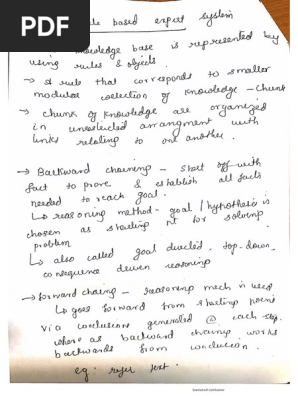 PDF
Rule based expert system
knowledge base is represented by
using rules & objects.
→ A rule that corresponds to smaller
modular collection of knowledge - chunk
→ chunk of knowledge are organized
in unselected arrangment with
links relating to one another.
→ Backward chaining - start off with
fact to prove & establish all facts
needed to reach goal.
↳ reasoning method - goal / hypothesis is
chosen as starting pt for solving
problem
↳ also called goal directed, top-down,
consequence driven reasoning
→ forward chaing - reasoning mech is used
↳ goes forward from starting point
via conclusions generated @ each step.
where as backward chaing works
backwards from conclusion.
eg: refer text.